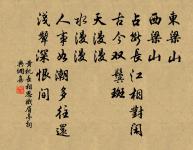 東梁山
西梁山
占斷長江相對閒
古今雙鬢斑
天漫漫
水漫漫
人事如潮多往還
淺顰深恨間